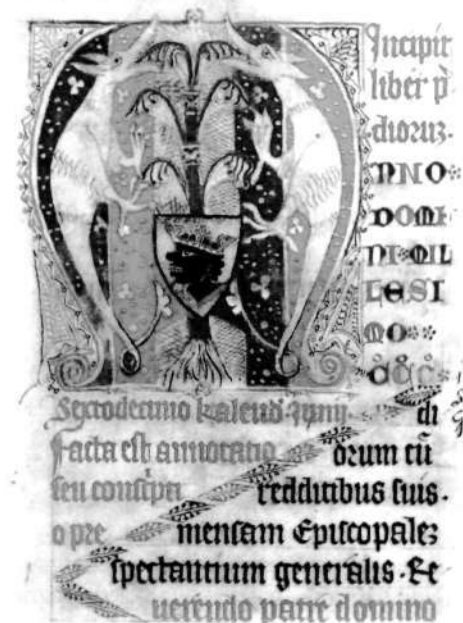 Incipit
liber p̄
diorum.
NNO
DOMI
NI MIL
LESI
MO
CCC
Sextodecimo kalend Junij di
Facta est annotatio orum cū
seu conscri redditibus suis.
o pre mensam Episcopalez
spectantium generalis. Re
uerendo patre domino